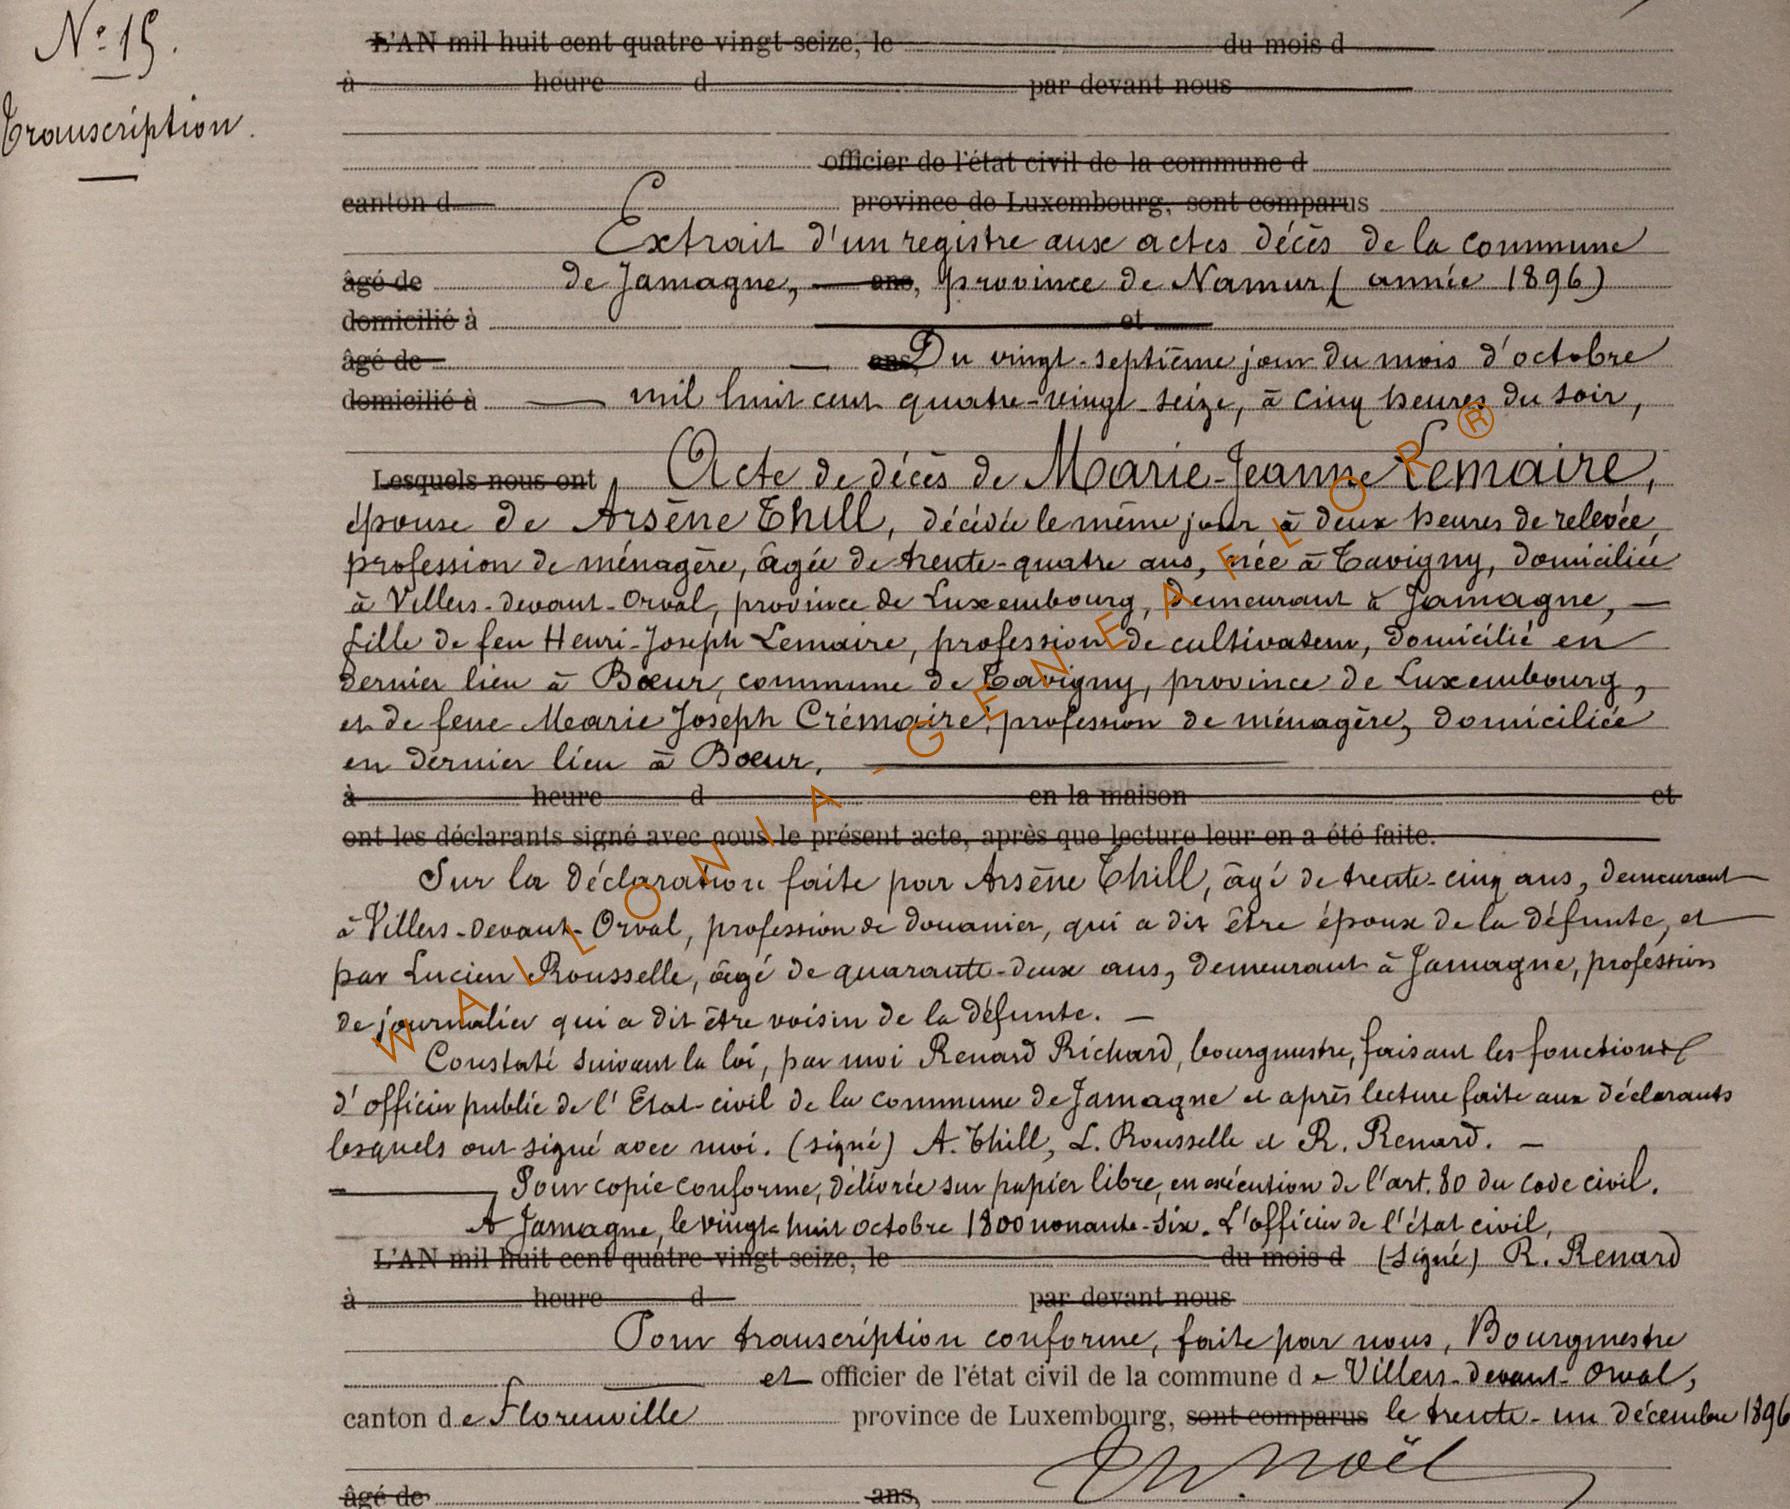 N° 15.
Transcription.
L'AN mil huit cent quatre-vingt-seize, le du mois d
à heure d par devant nous
officier de l'état civil de la commune d
canton d province de Luxembourg, sont comparus
Extrait d'un registre aux actes décès de la commune
âgé de de Jamagne, ans, province de Namur (année 1896)
domicilié à et
âgé de ans, Du vingt-septième jour du mois d'octobre
domicilié à mil huit cent quatre-vingt-seize, à cinq heures du soir,
Lesquels nous ont Acte de décès de Marie-Jeanne Lemaire,
épouse de Arsène Thill, décédée le même jour à deux heures de relevée,
profession de ménagère, âgée de trente-quatre ans, née à Tavigny, domiciliée
à Villers-devant-Orval, province de Luxembourg, demeurant à Jamagne, —
fille de feu Henri-Joseph Lemaire, profession de cultivateur, domicilié en
dernier lieu à Bœur, commune de Tavigny, province de Luxembourg,
et de feue Marie Joseph Crémaire, profession de ménagère, domiciliée
en dernier lieu à Bœur.
à heure d en la maison et
ont les déclarants signé avec nous le présent acte, après que lecture leur en a été faite.
Sur la déclaration faite par Arsène Thill, âgé de trente-cinq ans, demeurant
à Villers-devant-Orval, profession de douanier, qui a dit être époux de la défunte, et
par Lucien Rousselle, âgé de quarante-deux ans, demeurant à Jamagne, profession
de journalier qui a dit être voisin de la défunte. —
Constaté suivant la loi, par moi Renard Richard, bourgmestre, faisant les fonctions
d'officier public de l'Etat-civil de la commune de Jamagne et après lecture faite aux déclarants
lesquels ont signé avec moi. (signé) A. Thill, L. Rousselle et R. Renard. —
Pour copie conforme, délivrée sur papier libre, en exécution de l'art. 80 du code civil.
A Jamagne, le vingt-huit octobre 1800 nonante-six. L'officier de l'état civil,
L'AN mil huit cent quatre-vingt-seize, le du mois d (signé) R. Renard
à heure d par devant nous
Pour transcription conforme, faite par nous, Bourgmestre
et officier de l'état civil de la commune de Villers-devant-Orval,
canton de Florenville province de Luxembourg, sont comparus le trente-un décembre 1896
Noël
âgé de ans,
WALLONIA-GENEAFLOR®